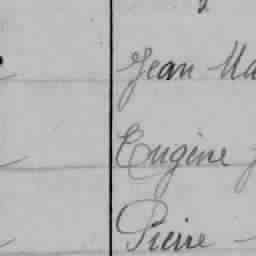 Jean Ma
Eugène J
Pierre